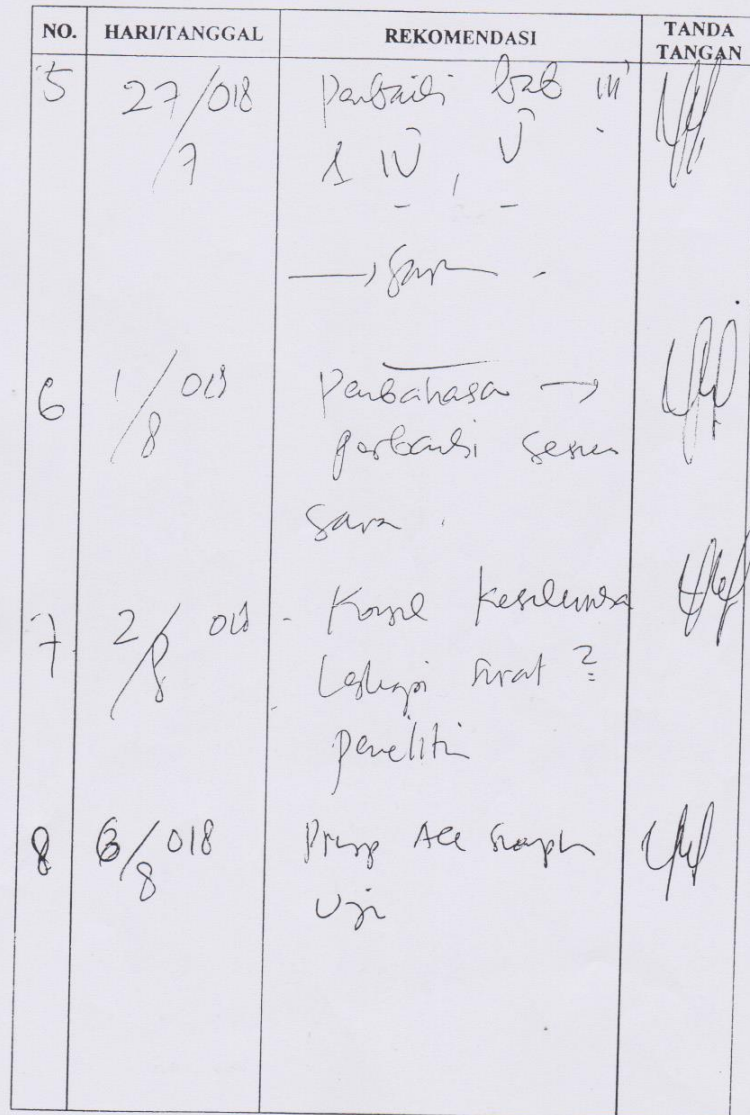 NO. HARI/TANGGAL REKOMENDASI TANDA TANGAN
5 27/7 018 Perbaiki bab III
& IV, V
→
6 1/8 018 Pembahasan →
perbaiki sesuai
saran.
7 2/8 018 - Konsul keseluruhan
Lengkapi surat2
penelitian
8 6/8 018 Prinsip Acc
Uji